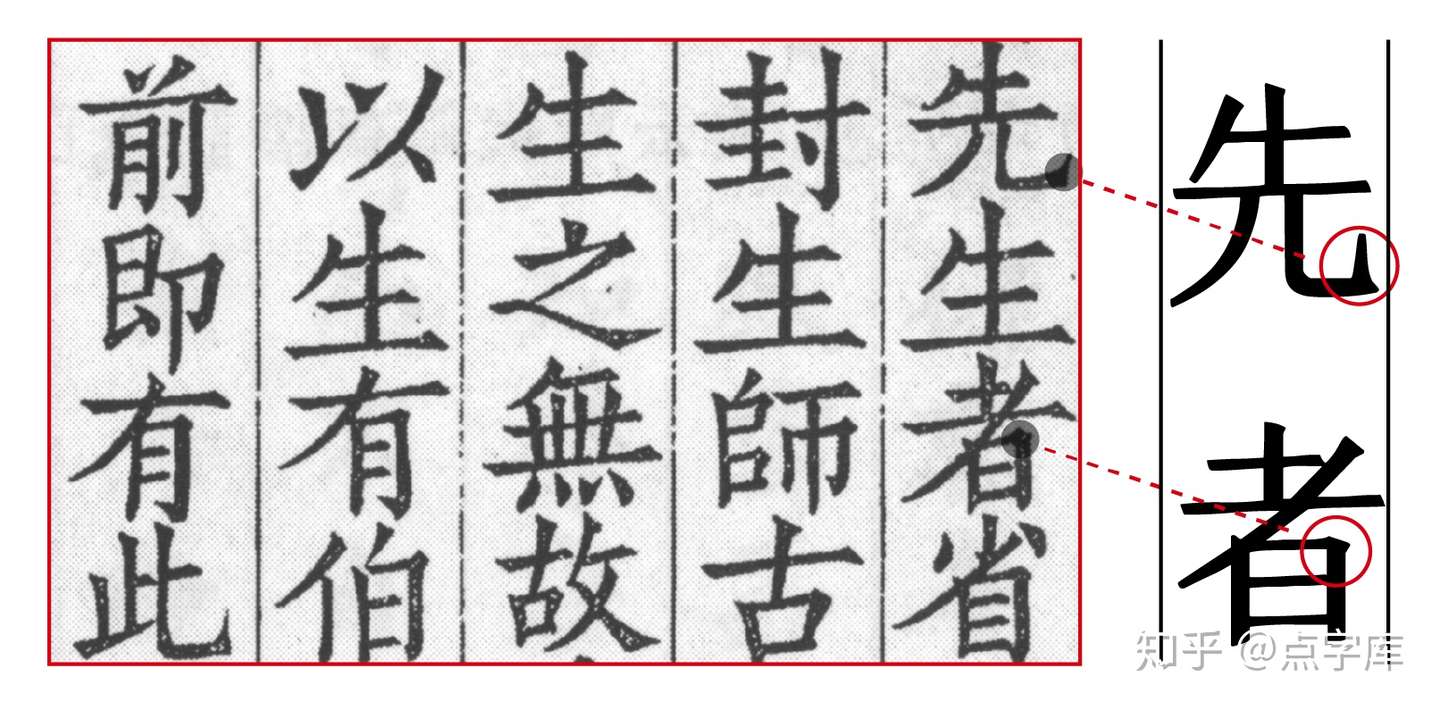 先生者省
封生師古
生之無故
以生有伯
前即有此
先者
知乎 @点字库